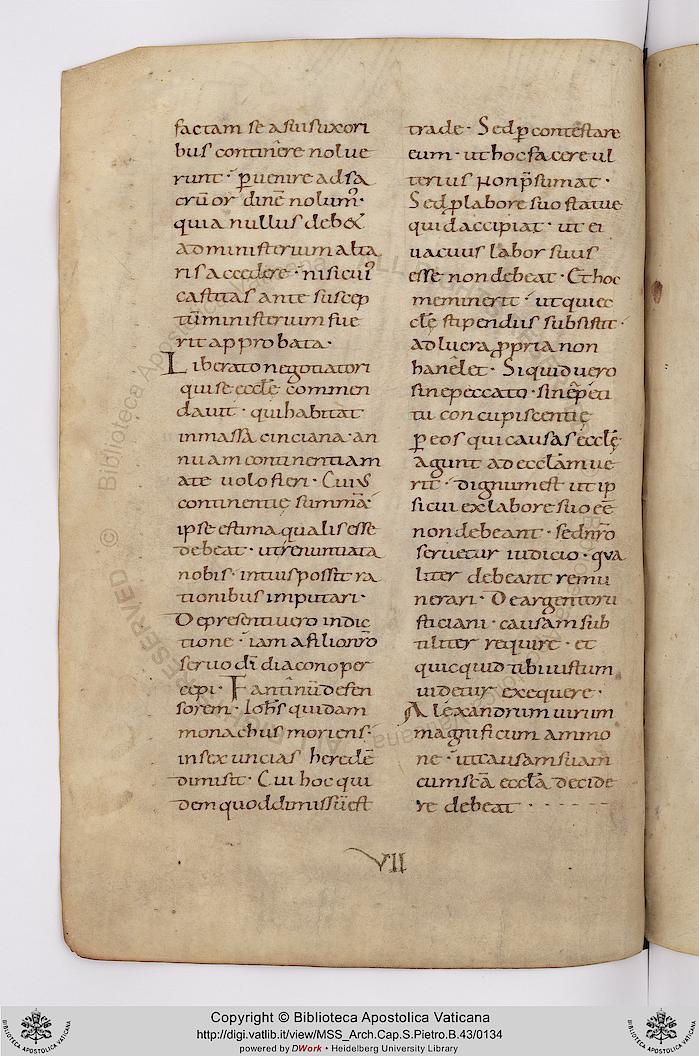 factam se a suis uxori
bus continere nolue
runt · p̱uenire ad sa
crū ordinē nolum᷒ ·
quia nullus debet
ad ministerium alta
ris accedere · nisi cui᷒
castitas ante suscep
tū ministerium fue
rit approbata ·
Liberato negotiatori
qui se ecclę commen
davit · qui habitat
in massa cinciana · an
nuam continentiam
a te volo fieri · Cuius
continentię summā
ipse estima qualis esse
debeat · ut renuntiata
nobis · intuis possit ra
tionibus imputari ·
De presenti vero indic
tione · iam a filio nr̄o
servo dī diacono per
cepi · Fantinū defen
sorem · Ioh̄s quidam
monachus moriens ·
in sex uncias heredē
dimisit · Cui hoc qui
dem quod dimissū est
trade · Sed p̱contestare
eum · ut hoc facere ul
terius non p̄sumat ·
Sed p̱ labore suo statue
quid accipiat · ut ei
vacuus labor suus
esse non debeat · Et hoc
meminerit · ut qui ec
clę̄ stipendiis subsistit ·
ad lucra p̱pria non
hanelet · Si quid vero
sine peccato · sine p̄teri
tu concupiscentię
p̱ eos qui causas ecclę̄
agunt ad ecclām ve
rit · dignum est ut ip
si cui ex labore suo eē
non debeant · sed nr̄o
servetur iudicio · qua
liter debeant remu
nerari · De argento ru
sticiani · causam sub
tiliter require · et
quicquid tibi iustum
videtur exequere ·
Alexandrum virum
magnificum ammo
ne · ut causam suam
cum scā ecclā decide
re debeat ·
VII
Copyright © Biblioteca Apostolica Vaticana
http://digi.vatlib.it/view/MSS_Arch.Cap.S.Pietro.B.43/0134
powered by DWork • Heidelberg University Library